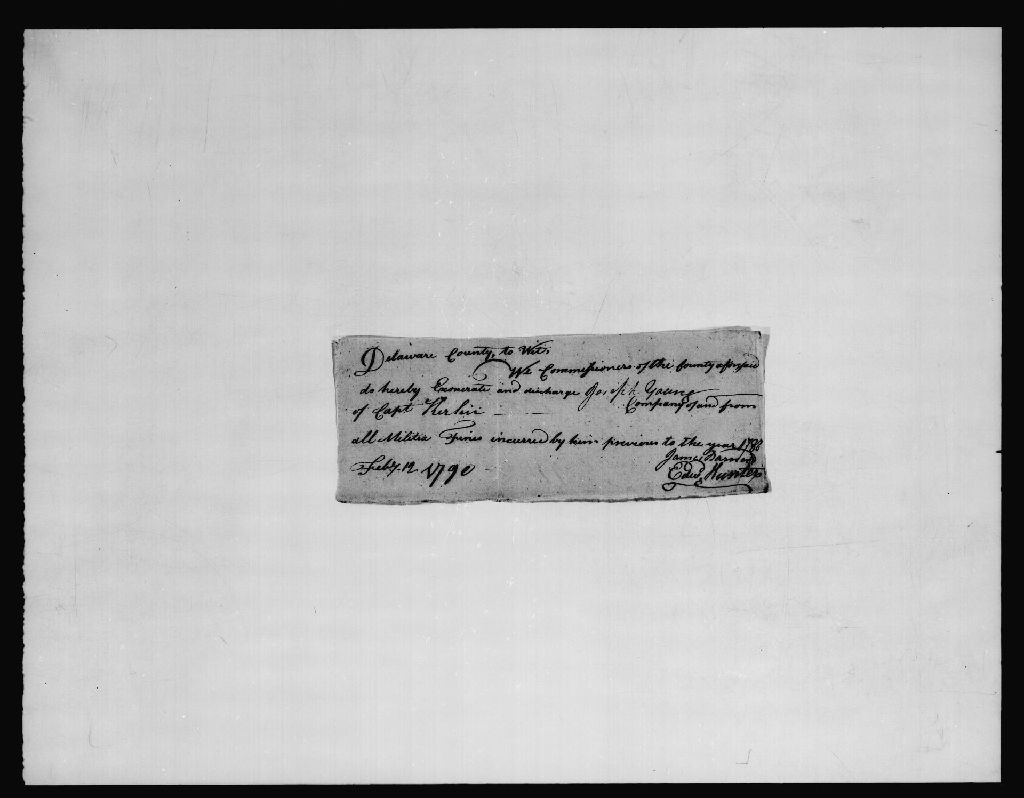 Delaware County, to Wit,
We Commissioners of the County aforesaid
do hereby Exonerate and discharge Joseph Young
of Capt Kerlin - - Company of and from
all Militia Fines incurred by him previous to the year 1788
James Barnard
Feby. 12 1790 Edwd. Hunter